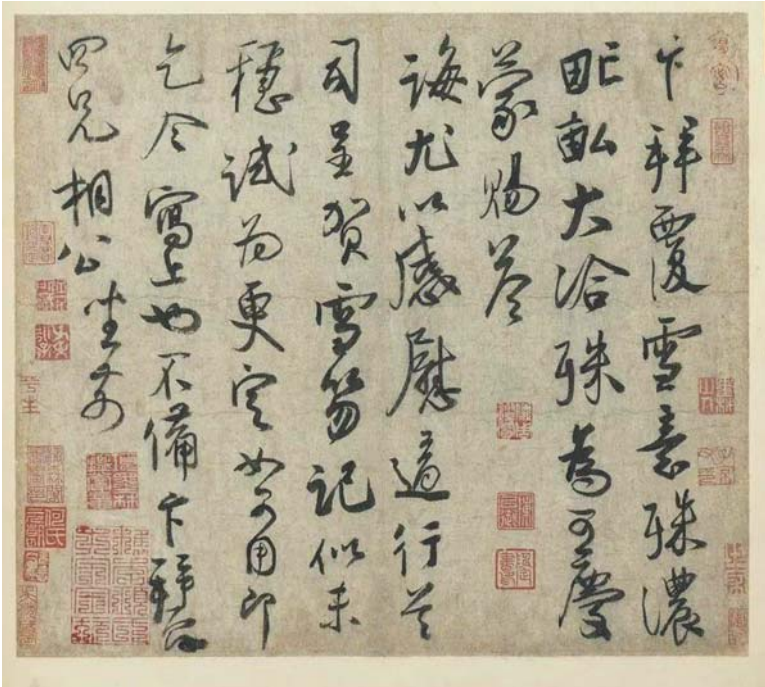 卞拜覆雪意殊濃
甿畝大洽殊為可慶
蒙賜答
誨尤以感慰適行首
司呈賀雪笏記似未
穩試為更定如可用即
乞令寫上也不備卞拜覆
四兄相公坐前